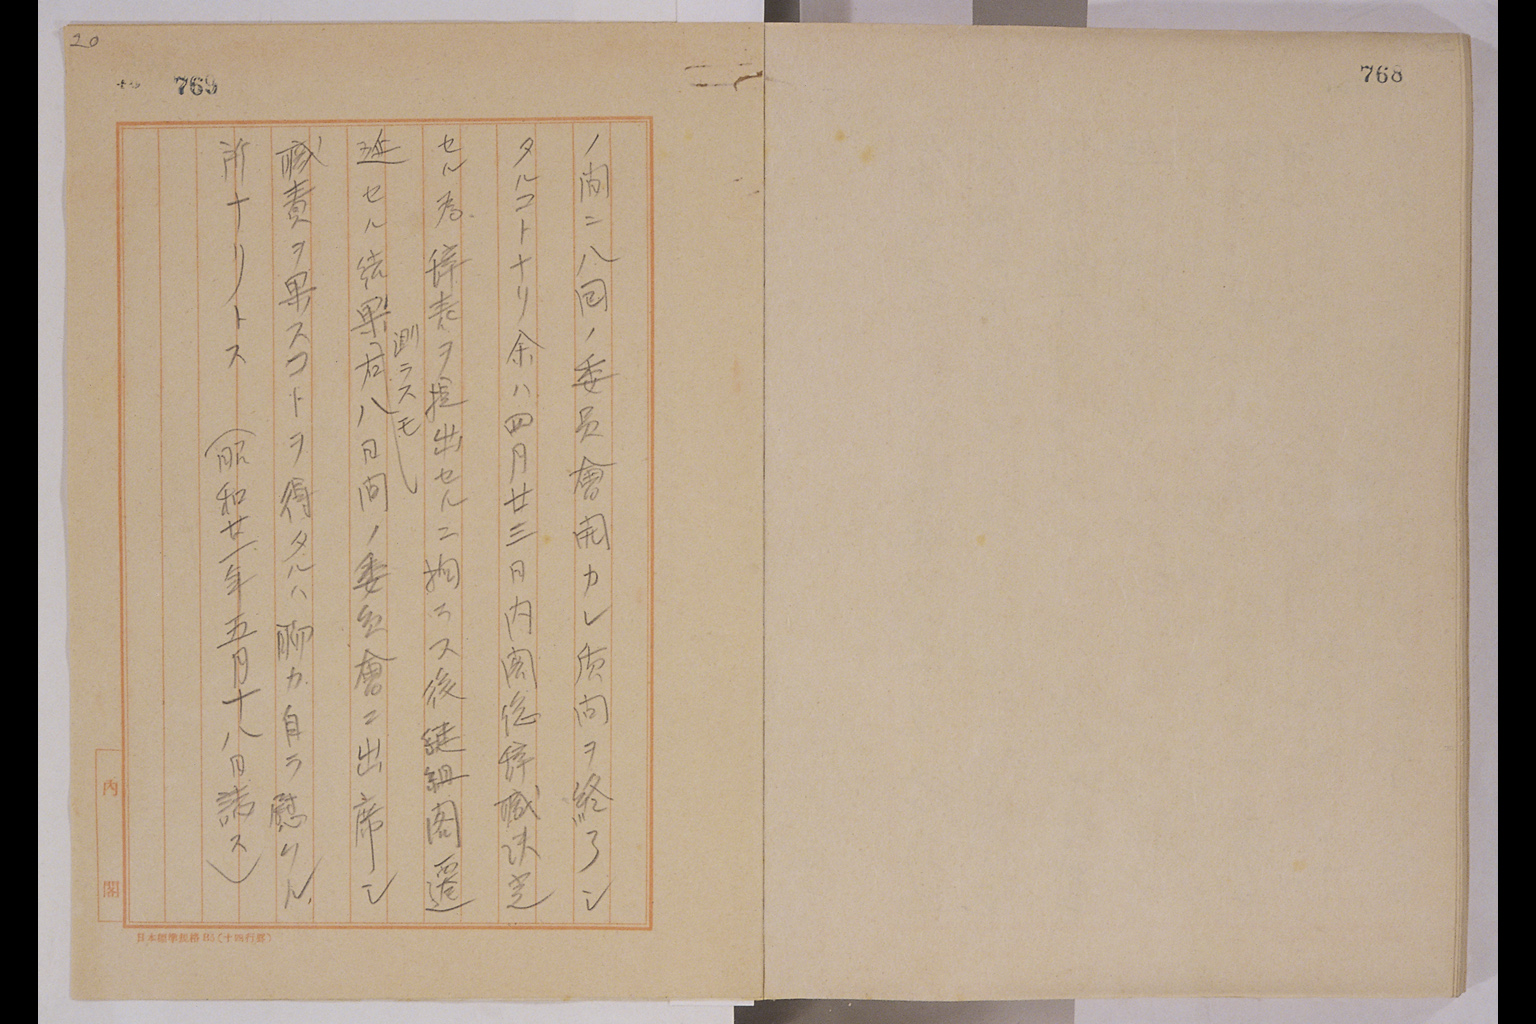 768
20
769
ノ間ニ八回ノ委員會開カレ質問ヲ終了シ
タルコトナリ余ハ四月廿三日内閣総辞職決定
セル為辞表ヲ提出セルニ拘ラス後継組閣遷
延セル結果君八日間ノ委員會ニ出席シ
測ラスモ
職責ヲ果スコトヲ得タルハ聊カ自ラ慰ムル
所ナリトス (昭和廿一年五月十八日誌ス)
内閣
日本標準規格B5(十四行罫)